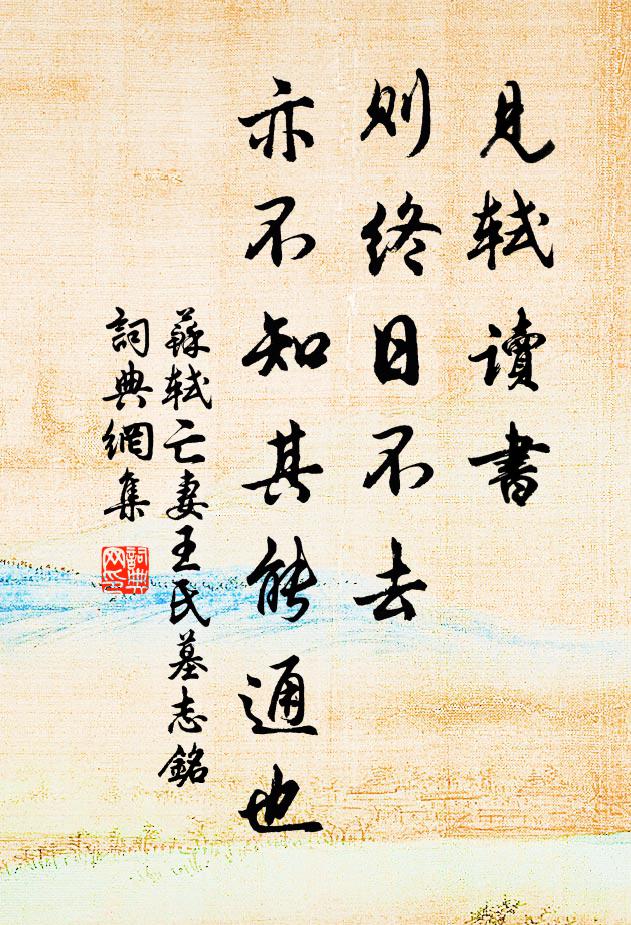 見軾讀書
則終日不去
亦不知其能通也
蘇軾亡妻王氏墓志銘
詞典網集
詞典网印